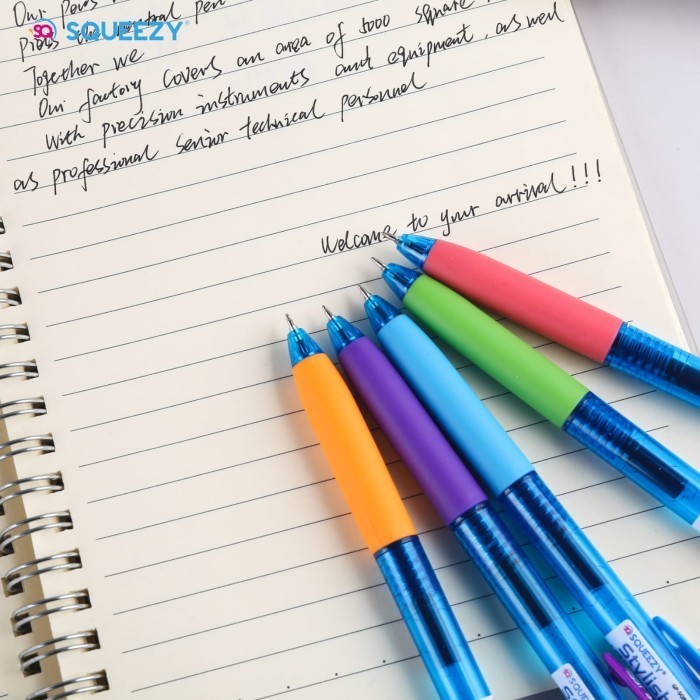 Our Pens
SQUEEZY®
Press the neutral pen
Together we
Our factory covers an area of 5000 square
With precision instruments and equipment, as well
as professional senior technical personnel
Welcome to your arrival!!!
SQUEEZY
Stylish
SQUEEZY